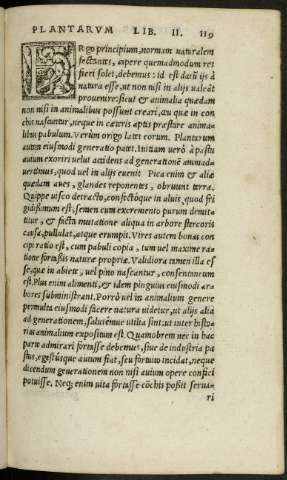 PLANTARVM LIB. II. 119
ERgo principium, normam naturalem
sectantes, capere quemadmodum res
fieri solet, debemus: id est darũ ijs à
natura esse, ut non nisi in alijs ualeãt
prouenire: sicut & animalia quædam
non nisi in animalibus possunt creari, aut quæ in con
chis nascantur, neque in cæteris aptis præstare anima-
libus pabulum. Verùm origo latet eorum. Plantarum
autem eiusmodi generatio patet. Initium uerò à pastu
auium exoriri uelut accidens ad generationẽ animad-
uertimus, quod uel in alijs euenit. Pica enim & aliæ
quædam aues, glandes reponentes, obruunt terra.
Quippe uisco detracto, confectóque in aluis, quod fri
gidissimum est, semen cum excremento purum demitti-
tur, & facta mutatione aliqua in arbore stercoris
causa, pullulat, atque erumpit. Vires autem bonas con
cipi ratio est, cum pabuli copia, tum uel maxime ra-
tione fortassis naturæ propriæ. Validiora tamen illa es
se, quæ in abiete, uel pino nascantur, consentaneum
est. Plus enim alimenti, & idem pinguius eiusmodi ar-
bores subministrant. Porrò uel in animalium genere
permulta eiusmodi facere natura uidetur, ut alijs alia
ad generationem, salutémue utilia sint: ut inter histo-
rias animalium expositum est. Quamobrem nec in hac
parte admirari fortasse debemus, siue de industria pa
stus, egestúsque auium fiat, seu fortuito incidat, neque
dicendum generationem non nisi auium opere confici
potuisse. Neq; enim uita fortasse cõchis possit serua-
ri